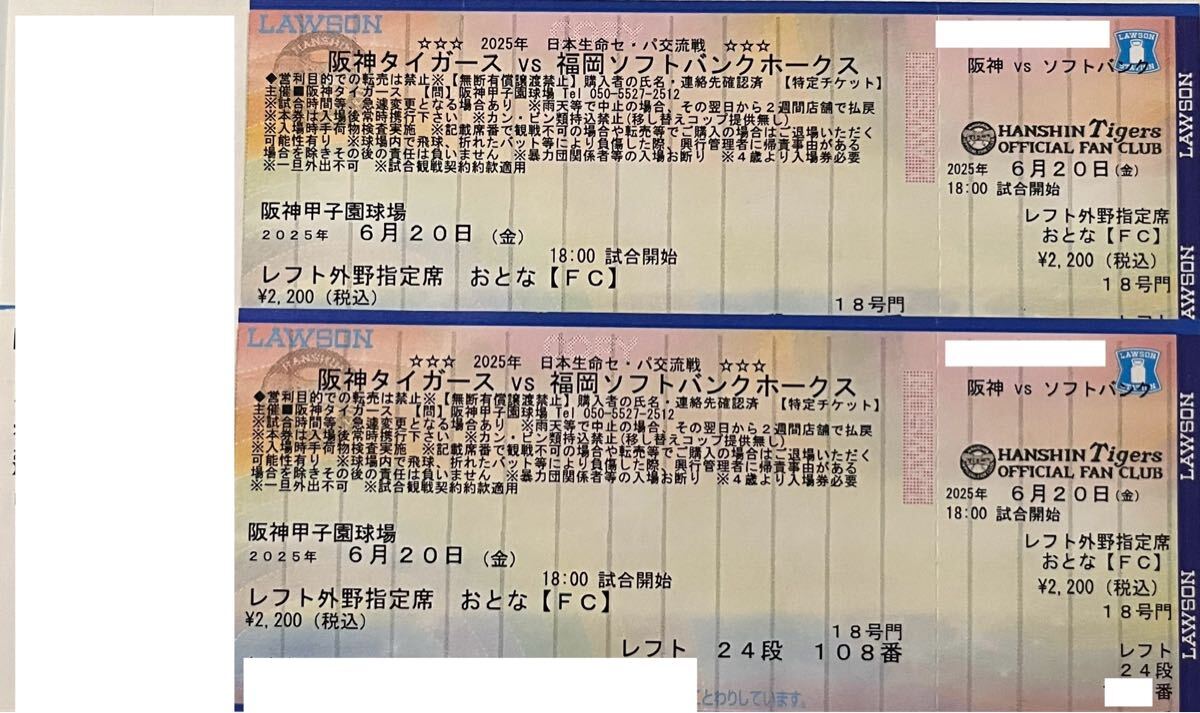 LAWSON
☆☆☆ 2025年 日本生命セ・パ交流戦 ☆☆☆
阪神タイガース vs 福岡ソフトバンクホークス
◆営利目的での転売は禁止※【無断有償譲渡禁止】購入者の氏名・連絡先確認済 【特定チケット】
主催■阪神タイガース 【問】阪神甲子園球場 Tel 050-5527-2512
※試合時間等、急遽変更となる場合あり ※雨天等で中止の場合、その翌日から2週間店舗で払戻
※本券は入場後常時携行下さい ※カン・ビン類持込禁止(移し替えコップ提供無し)
※入場時手荷物検査実施 ※記載席番で観戦不可の場合や転売等でご購入の場合はご退場いただく
可能性有り ※球場内で飛球、折れたバット等により負傷した際、興行管理者に帰責事由がある
場合を除き、その後の責任は負いません ※暴力団関係者等の入場お断り ※4歳より入場券必要
※一旦外出不可 ※試合観戦契約約款適用
阪神甲子園球場
2025年 6月20日 (金)
18:00 試合開始
レフト外野指定席 おとな【FC】
¥2,200 (税込)
18号門
LAWSON
阪神 vs ソフトバンク
HANSHIN Tigers
OFFICIAL FAN CLUB
2025年 6月20日(金)
18:00 試合開始
レフト外野指定席
おとな【FC】
¥2,200 (税込)
18号門
LAWSON
AWSON
LAWSON
☆☆☆ 2025年 日本生命セ・パ交流戦 ☆☆☆
阪神タイガース vs 福岡ソフトバンクホークス
◆営利目的での転売は禁止※【無断有償譲渡禁止】購入者の氏名・連絡先確認済 【特定チケット】
主催■阪神タイガース 【問】阪神甲子園球場 Tel 050-5527-2512
※試合時間等、急遽変更となる場合あり ※雨天等で中止の場合、その翌日から2週間店舗で払戻
※本券は入場後常時携行下さい ※カン・ビン類持込禁止(移し替えコップ提供無し)
※入場時手荷物検査実施 ※記載席番で観戦不可の場合や転売等でご購入の場合はご退場いただく
可能性有り ※球場内で飛球、折れたバット等により負傷した際、興行管理者に帰責事由がある
場合を除き、その後の責任は負いません ※暴力団関係者等の入場お断り ※4歳より入場券必要
※一旦外出不可 ※試合観戦契約約款適用
阪神甲子園球場
2025年 6月20日 (金)
18:00 試合開始
レフト外野指定席 おとな【FC】
¥2,200 (税込)
18号門
レフト 24段 108番
とわりしています。
LAWSON
阪神 vs ソフトバンク
HANSHIN Tigers
OFFICIAL FAN CLUB
2025年 6月20日(金)
18:00 試合開始
レフト外野指定席
おとな【FC】
¥2,200 (税込)
18号門
レフト
24段
番
LAWSON
LAWSON